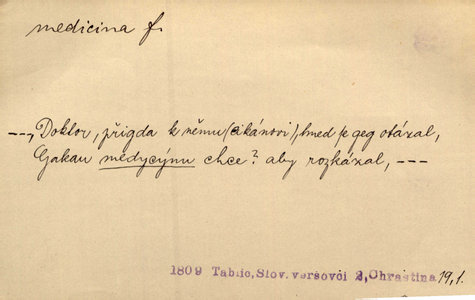 medicina f.
---, Doktor, přigda k němu (cikánovi), hned se geg otázal,
Gakau mědycýnu chce? aby rozkázal, ---
1809 Tablic, Slov. veršovci 2, Chrastina 19,1.